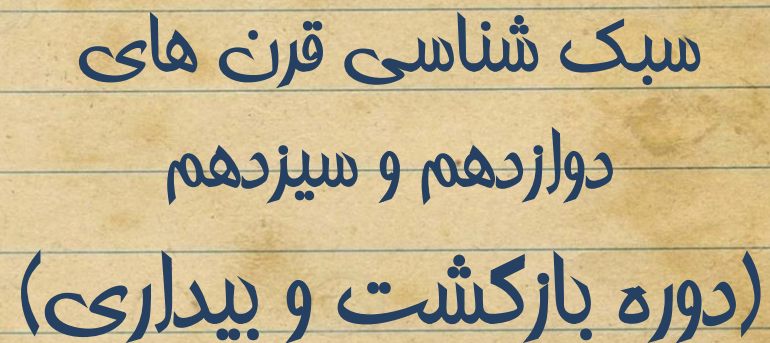 سبک شناسی قرن های
دوازدهم و سیزدهم
(دوره بازگشت و بیداری)